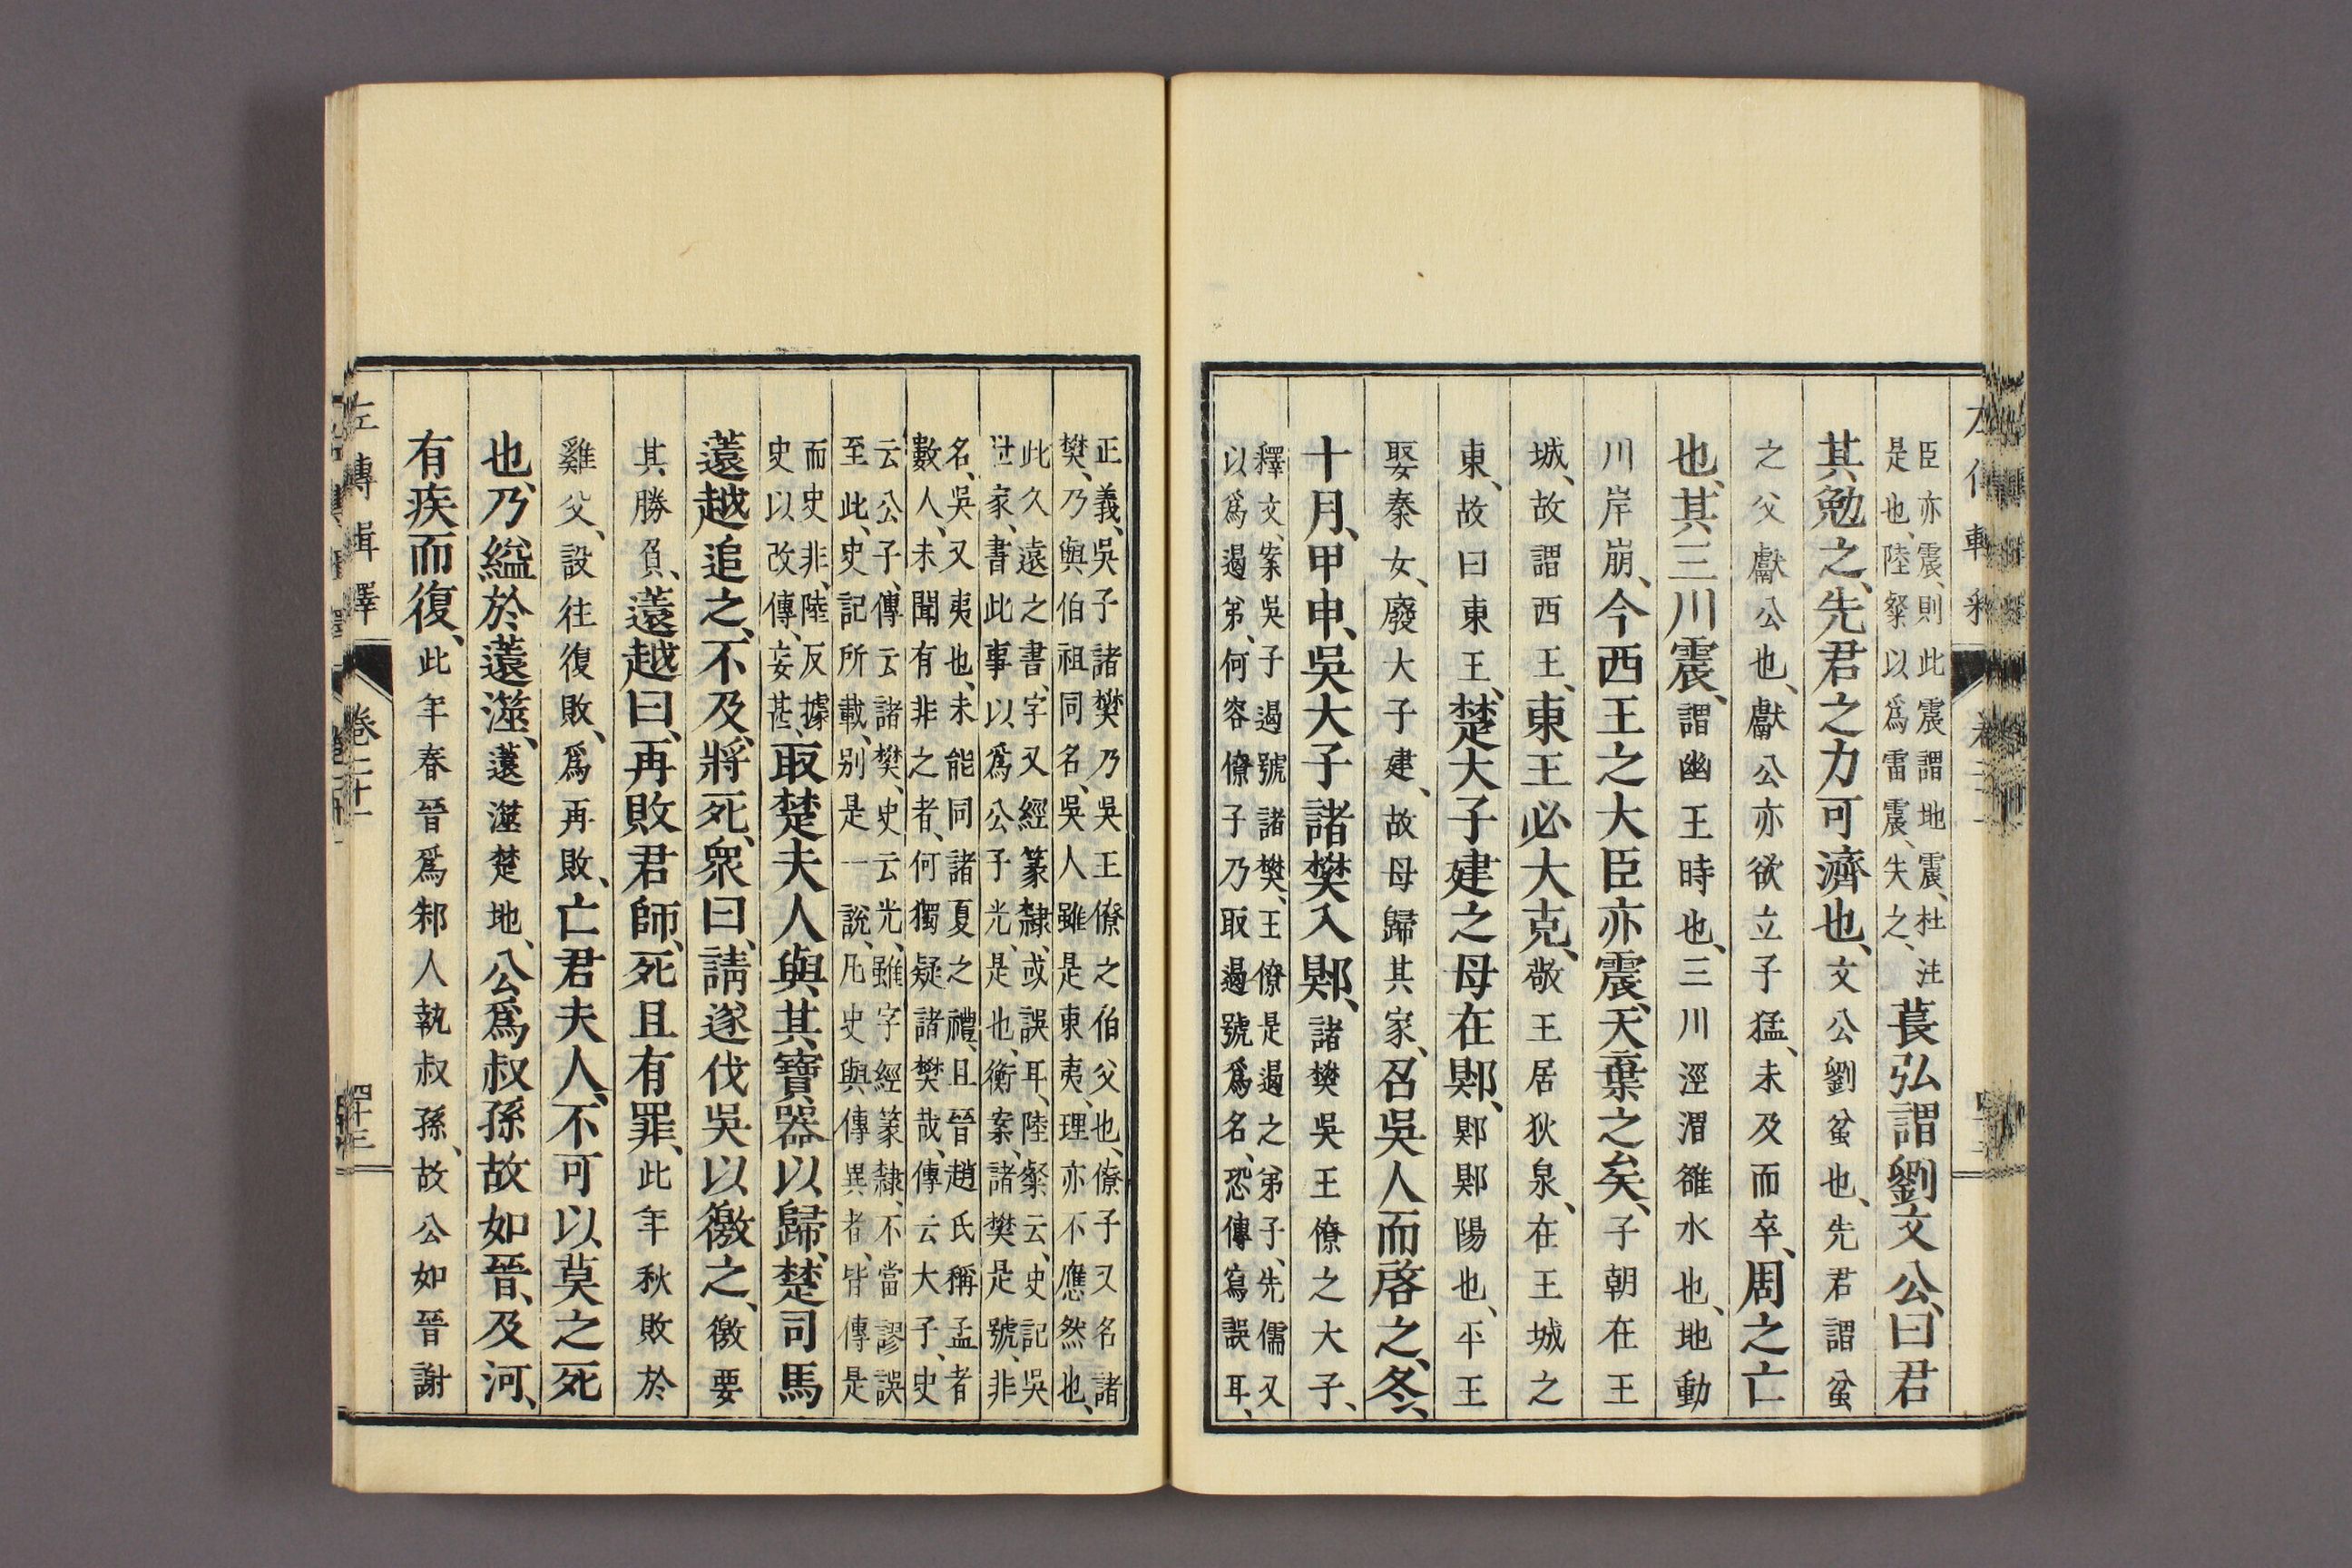 臣亦震、則此震謂地震、杜注
是也、陸粲以爲雷震、失之、
萇弘謂劉文公、曰君
其勉之、先君之力可濟也、文公劉蚠也、先君謂蚠
之父獻公也、獻公亦欲立子猛、未及而卒、周之亡
也、其三川震、謂幽王時也、三川涇渭雒水也、地動
川岸崩、今西王之大臣亦震、天棄之矣、子朝在王
城、故謂西王、東王必大克、敬王居狄泉、在王城之
東、故曰東王、楚大子建之母在郹、郹郹陽也、平王
娶秦女、廢大子建、故母歸其家、召吳人而啓之、冬、
十月、甲申、吳大子諸樊入郹、諸樊吳王僚之大子、
釋文、案吳子遏號諸樊、王僚是遏之弟子、先儒又
以爲遏弟、何容僚子乃取遏號爲名、恐傳寫誤耳、
正義、吳子諸樊乃吳王僚之伯父也、僚子又名諸
樊、乃與伯祖同名、吳人雖是東夷、理亦不應然也、
此久遠之書、字又經篆隸、或誤耳、陸粲云、史記吳
世家、書此事以爲公子光、是也、衡案、諸樊是號、非
名、吳又夷也、未能同諸夏之禮、且晉趙氏稱孟者
數人、未聞有非之者、何獨疑諸樊哉、傳云大子、史
云公子、傳云諸樊、史云光、雖字經篆隸、不當謬誤
至此、史記所載、別是一說、凡史與傳異者、皆傳是
而史非、陸反據
史以改傳、妄甚、
取楚夫人與其寶器以歸、楚司馬
薳越追之、不及、將死、衆曰、請遂伐吳以徼之、徼要
其勝負、薳越曰、再敗君師、死且有罪、此年秋敗於
雞父、設往復敗、爲再敗、亡君夫人、不可以莫之死
也、乃縊於薳澨、薳澨楚地、公爲叔孫故如晉、及河、
有疾而復、此年春晉爲邾人執叔孫、故公如晉謝
左傳輯釋 卷二十一